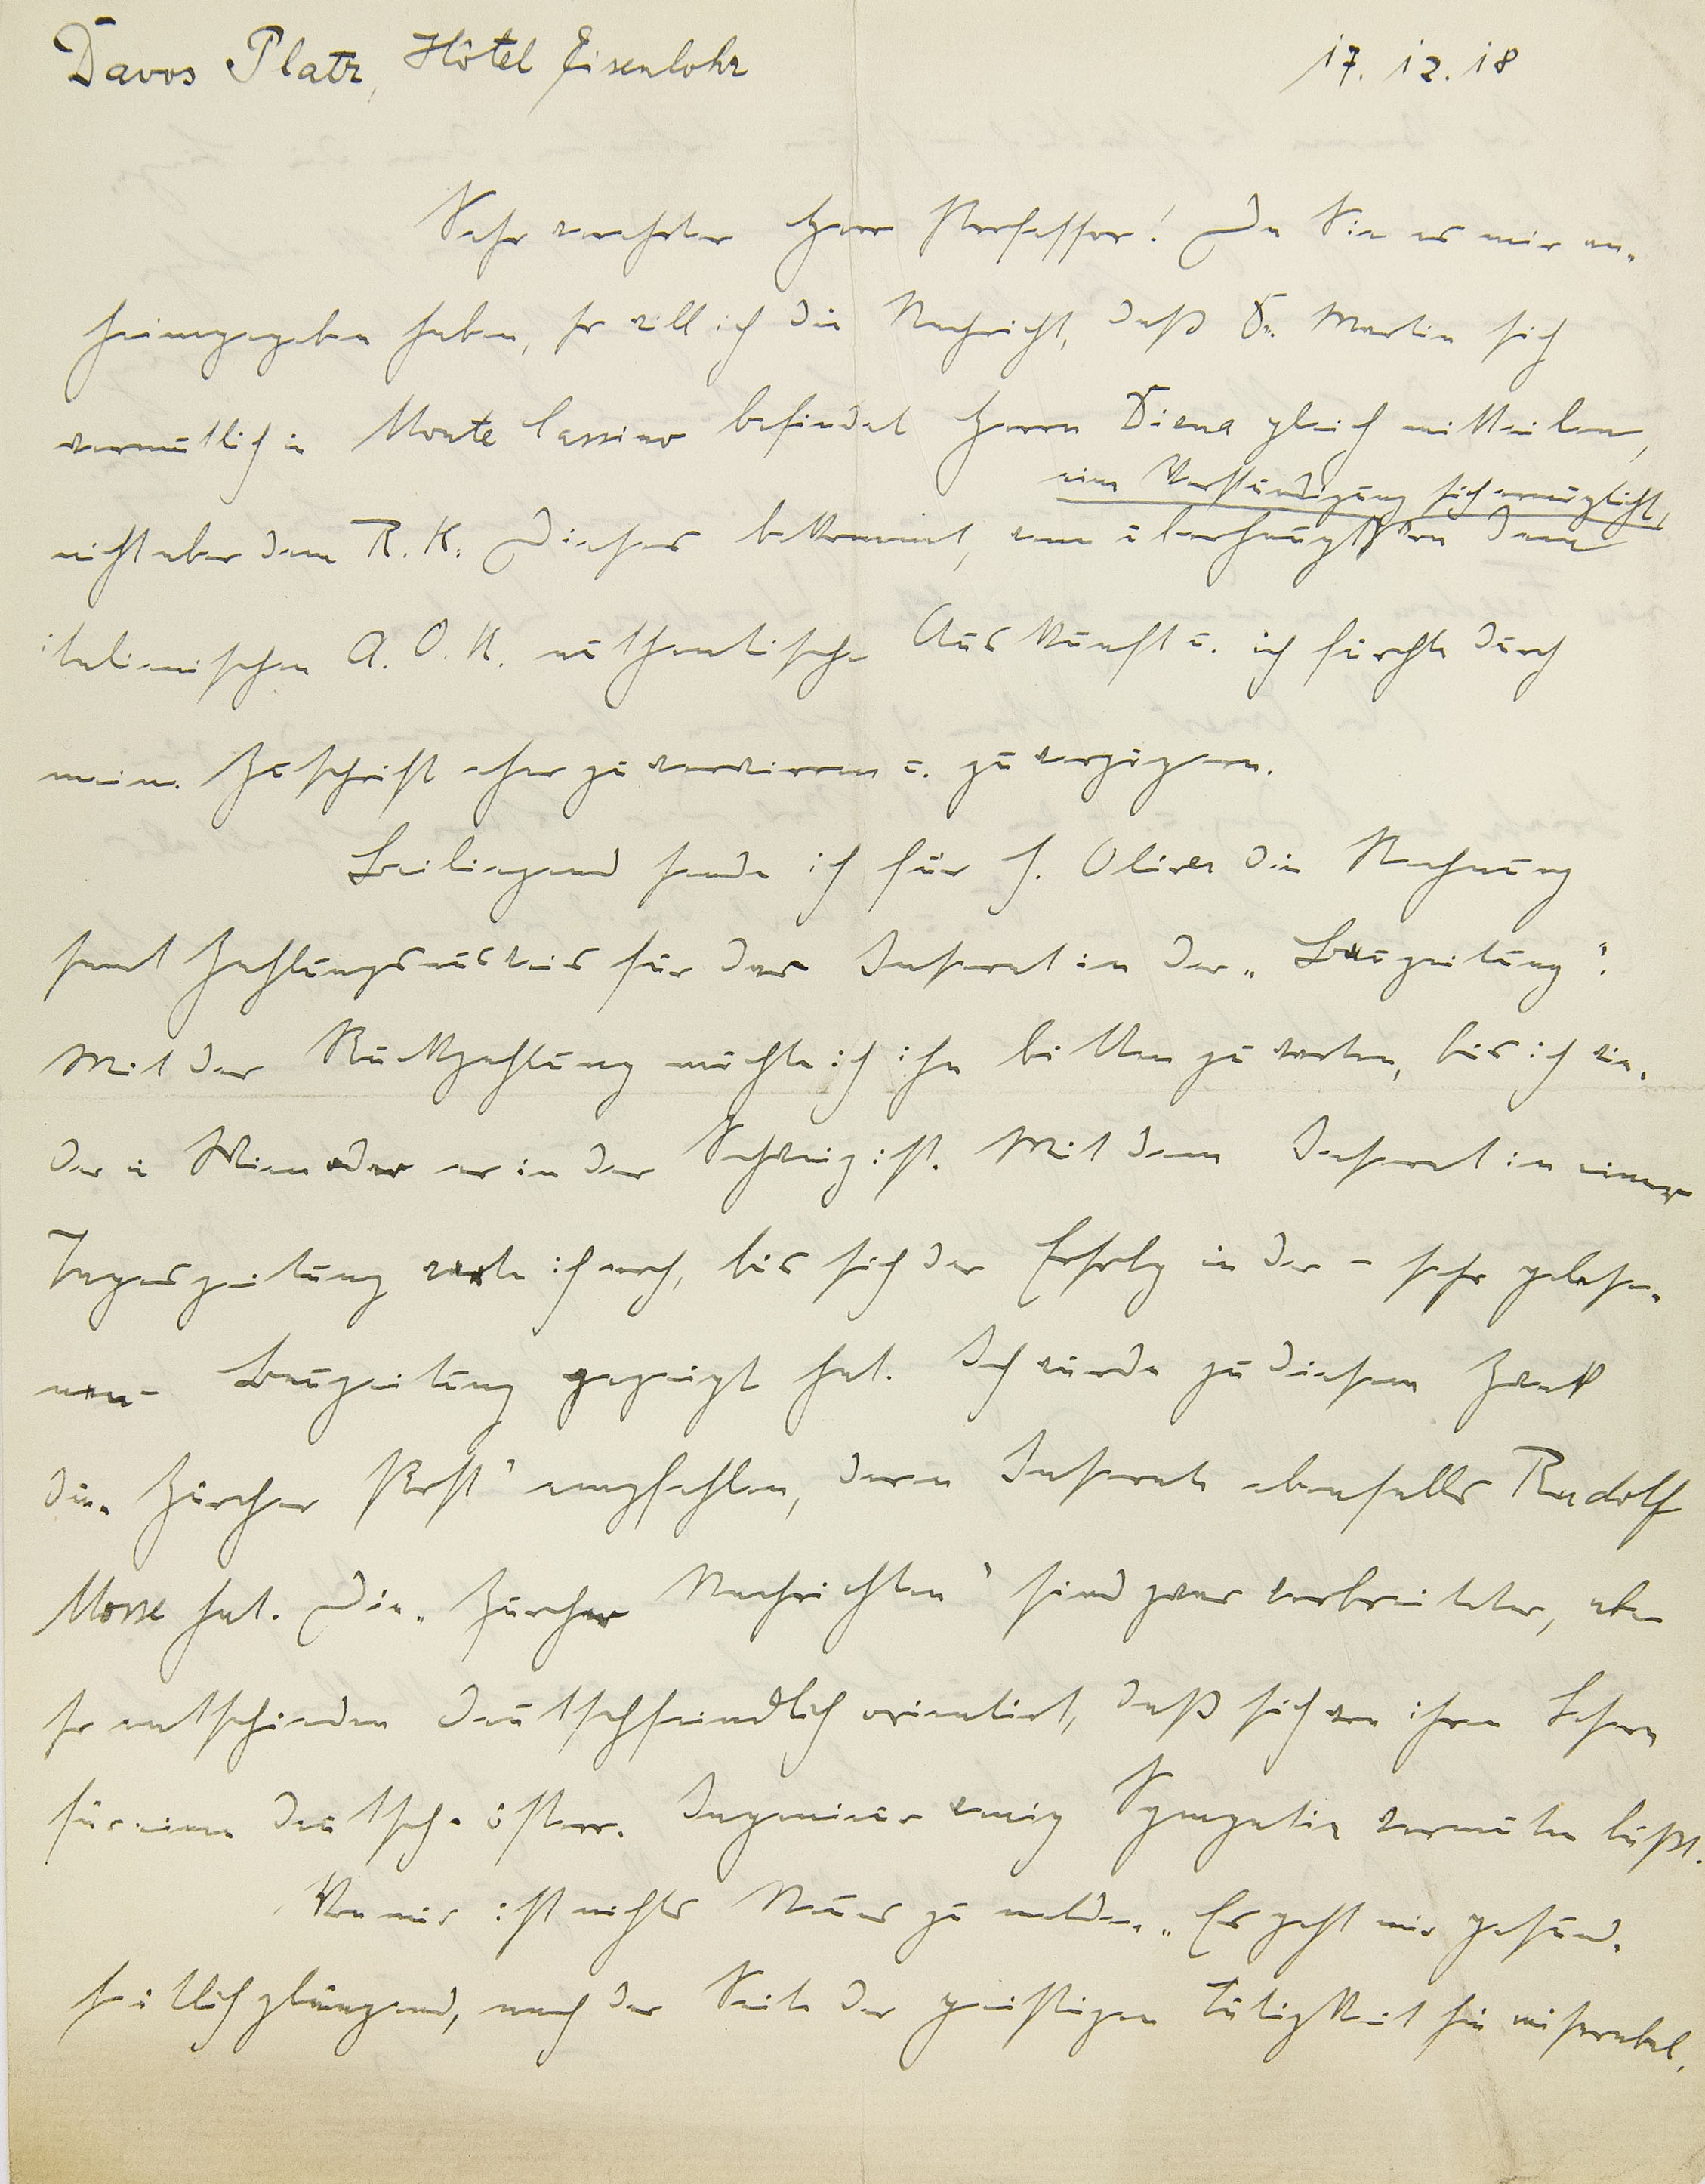 Davos Platz, Hôtel Eisenlohr 17. 12. 18
Sehr verehrter Herr Professor! Da Sie es mir an-
heimgegeben haben, so will ich die Nachricht, daß Dr. Martin sich
vermutlich in Monte Cassino befindet Herrn Diena gleich mitteilen,
eine Verständigung sich ermöglicht,
nicht aber dem R. K. Dieses bekommt, wenn überhaupt von dem
italienischen A. O. K. authentische Auskunft u. ich fürchte durch
meine Zuschrift eher zu verwirren u. zu verzögern.
Beiliegend sende ich für H. Oliver die Rechnung
samt Zahlungsausweis für das Inserat in der „Bauzeitung“.
Mit der Rückzahlung möchte ich ihn bitten zu warten, bis ich wie-
der in Wien oder er in der Schweiz ist. Mit dem Inserat in einer
Tageszeitung warte ich noch, bis sich der Erfolg in der – sehr gelese-
nen – Bauzeitung gezeigt hat. Ich würde zu diesem Zweck
die „Zürcher Post“ empfehlen, deren Inserate ebenfalls Rudolf
Mosse hat. Die „Zürcher Nachrichten“ sind zwar verbreiteter, aber
so entschieden deutschfeindlich orientiert, daß sich von ihren Lesern
für einen deutsch-österr. Ingenieur wenig Sympatie vermuten läßt.
Von mir ist nichts Neues zu melden. Es geht mir gesund-
heitlich glänzend, nach der Seite der geistigen Tätigkeit hin miserabel.